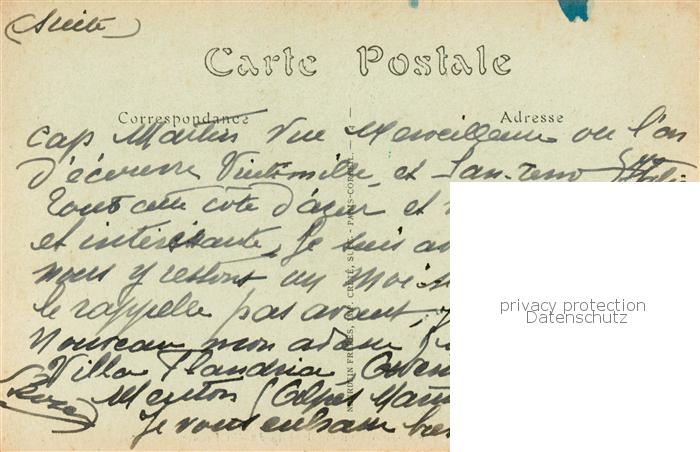 (Suite)
Carte Postale
Correspondance
Adresse
Cap Martin Vue Merveilleuse ou l'on
d'écouvre Vintimille et San-remo
Toute cette côte d'azur et
et intéressante, Je suis
nous y restons un mois
le rappelle pas avant,
Nouveau mon
Villa Flandria
Menton (Alpes Mari
Je vous embrasse
privacy protection
Datenschutz